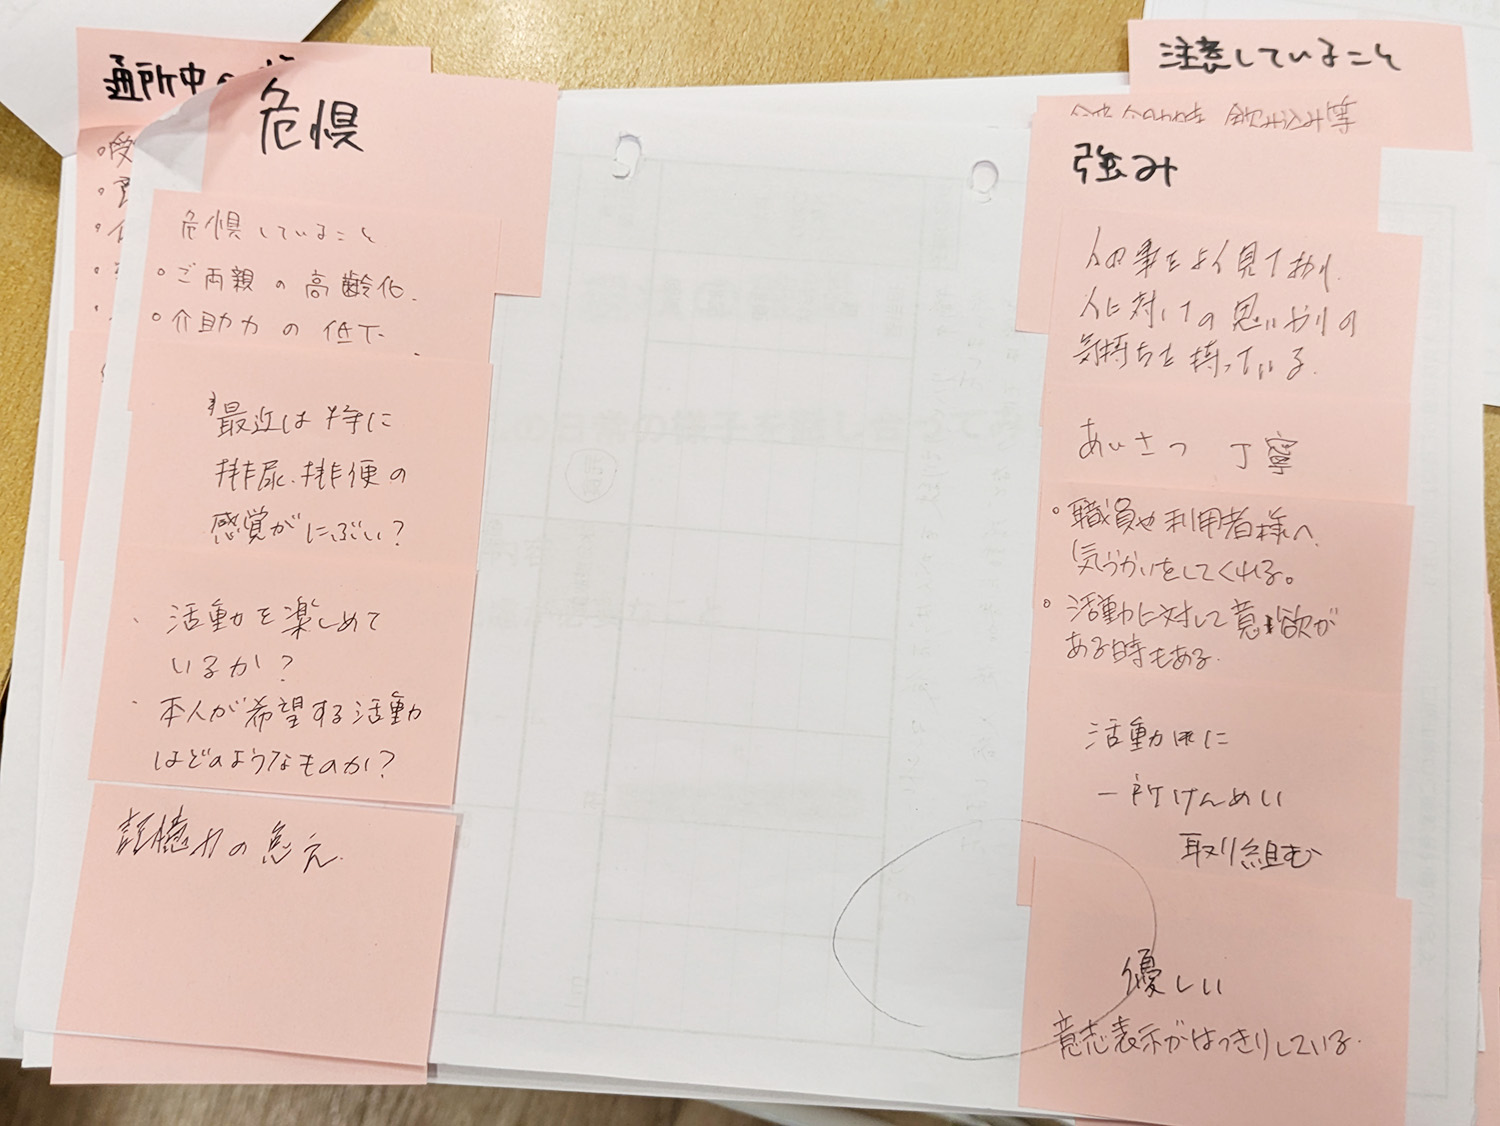 通所中の
危惧
危惧していること
◦ご両親の高齢化.
◦介助力の低下.
最近は特に
排尿、排便の
感覚がにぶい？
、活動を楽しめて
いるか？
、本人が希望する活動
はどのようなものか？
記憶力の
注意していること
飲み込み等
強み
人の事をよく見ており、
人に対しての思いやりの
気持ちを持っている.
あいさつ 丁寧
◦職員や利用者様へ
気づかいをしてくれる。
◦活動に対して意欲が
ある時もある.
活動中に
一所けんめい
取り組む
優しい
意志表示がはっきりしている.